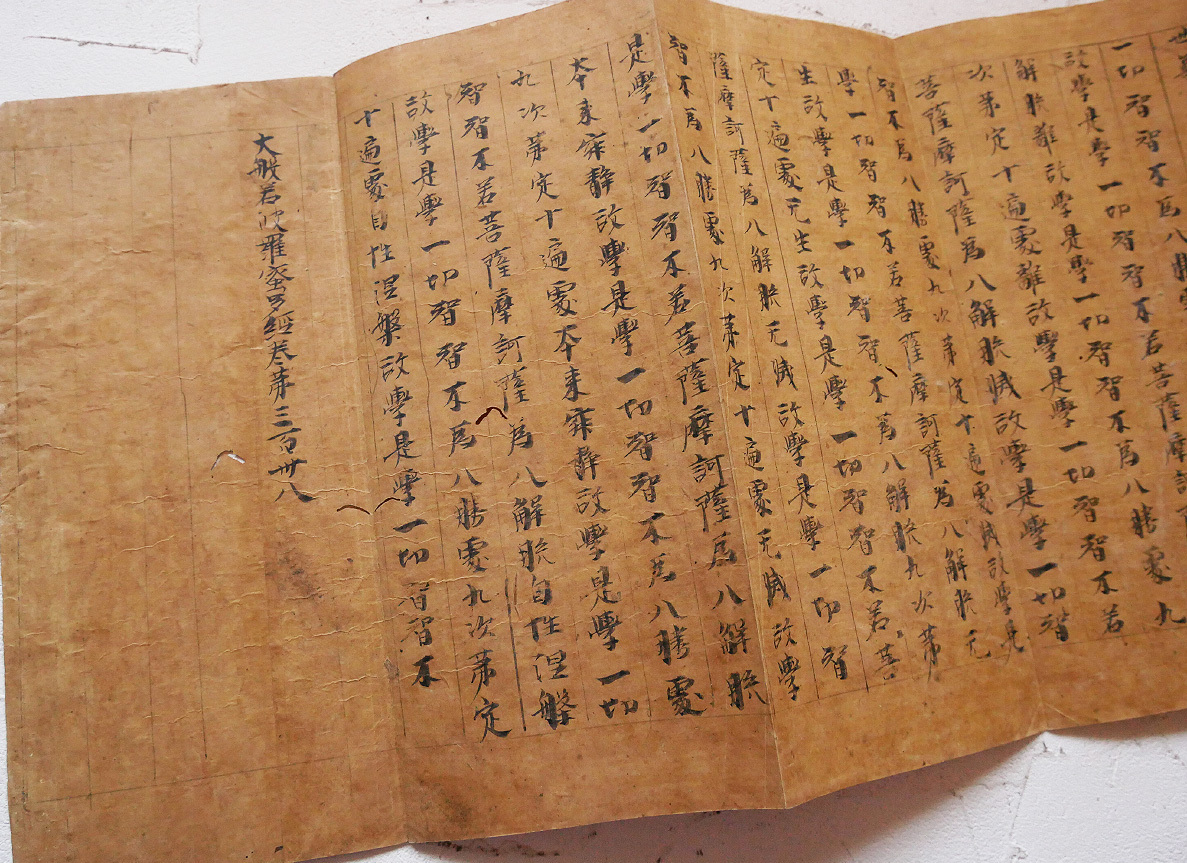 一切智智不為八勝處
故學是學一切智智不若菩薩摩訶
解脫離故學是學一切智智不為八勝處九
次第定十遍處離故學是學一切智智不若
菩薩摩訶薩為八解脫滅故學是學一切智
智不為八勝處九次第定十遍處滅故學是
學一切智智不若菩薩摩訶薩為八解脫无
生故學是學一切智智不為八解脫九次第
定十遍處无生故學是學一切智智不若菩
薩摩訶薩為八解脫无滅故學是學一切智
智不為八勝處九次第定十遍處无滅故學
是學一切智智不若菩薩摩訶薩為八解脫
本來寂靜故學是學一切智智不為八勝處
九次第定十遍處本來寂靜故學是學一切
智智不若菩薩摩訶薩為八解脫自性涅槃
故學是學一切智智不為八勝處九次第定
十遍處自性涅槃故學是學一切智智不
大般若波羅蜜多經卷第三百卅八